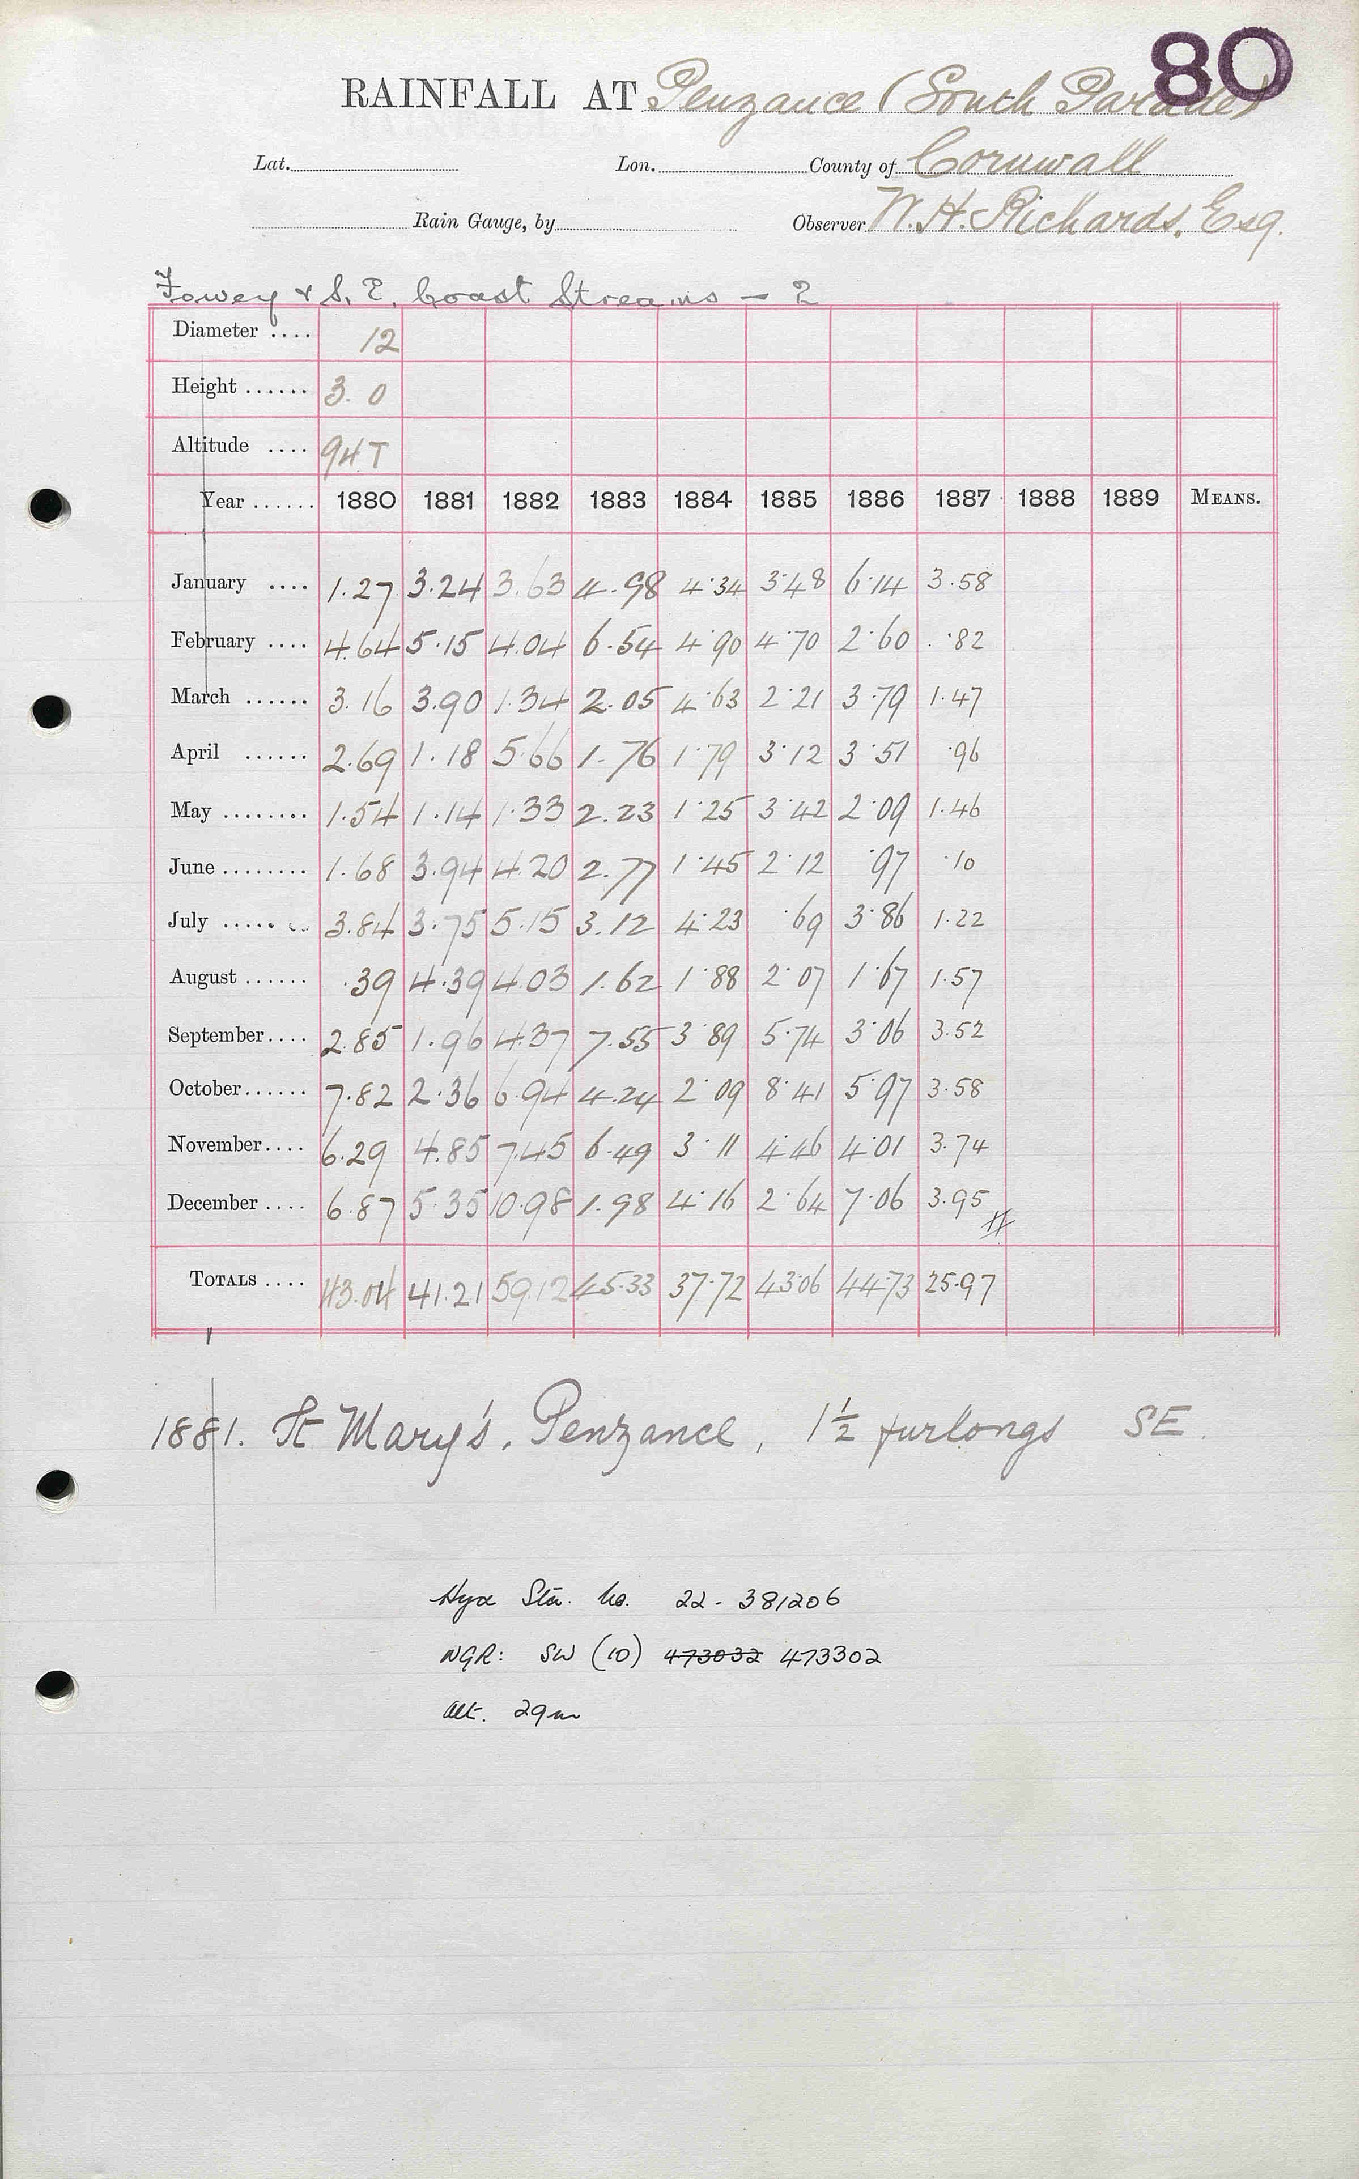 80
RAINFALL AT Penzance (South Parade)
Lat. Lon. County of Cornwall
Rain Gauge, by Observer W. H. Richards, Esq.
Fowey & S. E. Coast Streams – 2
Diameter .... 12
Height ...... 3. 0
Altitude .... 94 T
Year ...... 1880 1881 1882 1883 1884 1885 1886 1887 1888 1889 MEANS.
January .... 1.27 3.24 3.63 4.98 4.34 3.48 6.14 3.58
February .... 4.64 5.15 4.04 6.54 4.90 4.70 2.60 .82
March ...... 3.16 3.90 1.34 2.05 4.63 2.21 3.79 1.47
April ...... 2.69 1.18 5.66 1.76 1.79 3.12 3.51 .96
May ........ 1.54 1.14 1.33 2.23 1.25 3.42 2.09 1.46
June ........ 1.68 3.94 4.20 2.77 1.45 2.12 .97 .10
July ........ 3.84 3.75 5.15 3.12 4.23 .69 3.86 1.22
August ...... .39 4.39 4.03 1.62 1.88 2.07 1.67 1.57
September .... 2.85 1.96 4.37 7.55 3.89 5.74 3.06 3.52
October ...... 7.82 2.36 6.94 4.24 2.09 8.41 5.97 3.58
November .... 6.29 4.85 7.45 6.49 3.11 4.46 4.01 3.74
December .... 6.87 5.35 10.98 1.98 4.16 2.64 7.06 3.95 #
TOTALS .... 43.04 41.21 59.12 45.33 37.72 43.06 44.73 25.97
1881. St Mary's, Penzance, 1½ furlongs SE.
Hyd Stn. No. 22 - 381206
NGR: SW (10) 473032 473302
Alt. 29m